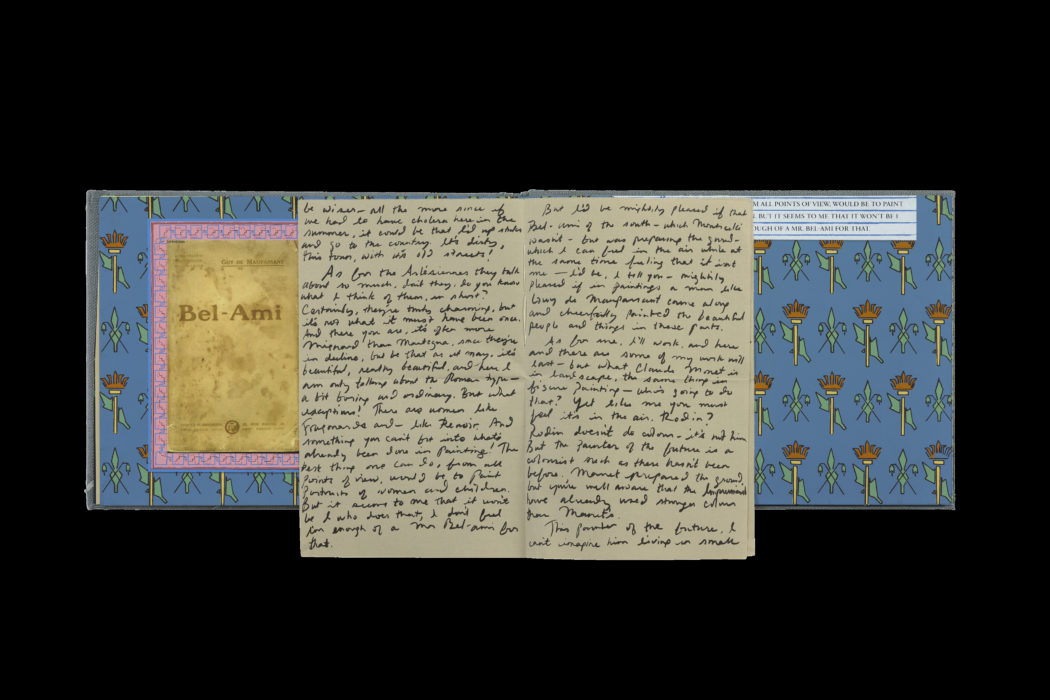 GUY DE MAUPASSANT
Bel-Ami
be wiser – all the more since if
we had to have cholera here in the
summer, it could be that I'd up sticks
and go to the country. It's dirty,
this town, with its old streets!
As for the Arlésiennes they talk
about so much, don't they, do you know
what I think of them, in short?
Certainly, they're truly charming, but
it's not what it must have been once.
And there you are, it's often more
Mignard than Mantegna, since they're
in decline, but be that as it may, it's
beautiful, really beautiful, and here I
am only talking about the Roman type –
a bit boring and ordinary. But what
exceptions! There are women like
Fragonards and – like Renoir. And
something you can't fix into what's
already been done in painting! The
best thing one can do, from all
points of view, would be to paint
portraits of women and children.
But it seems to me that it won't
be I who does that, I don't feel
enough of a Mr Bel-ami for
that.
But I'd be mightily pleased if that
Bel-ami of the south – which Monticelli
wasn't – but was preparing the ground –
which I can feel in the air while at
the same time feeling that it isn't
me – I'd be, I tell you – mightily
pleased if in paintings a man like
Guy de Maupassant came along
and cheerfully painted the beautiful
people and things in these parts.
As for me, I'll work, and here
and there are some of my work will
last – but what Claude Monet is
in landscape, the same thing in
figure painting – who's going to do
that? Yet like me you must
feel it's in the air. Rodin?
Rodin doesn't do colour – it's not him
But the painter of the future is a
colourist such as there hasn't been
before. Manet prepared the ground,
but you're well aware that the Impressionists
have already used stronger colour
than Manet's.
This painter of the future, I
can't imagine him living in small
M ALL POINTS OF VIEW, WOULD BE TO PAINT
. BUT IT SEEMS TO ME THAT IT WON'T BE I
OUGH OF A MR. BEL-AMI FOR THAT.